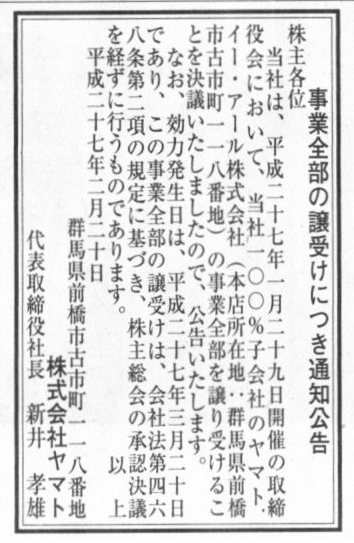 事業全部の譲受けにつき通知公告
株主各位
当社は、平成二十七年一月二十九日開催の取締
役会において、当社一〇〇%子会社のヤマト・
イー・アール株式会社(本店所在地:群馬県前橋
市古市町一一八番地)の事業全部を譲り受けるこ
とを決議いたしましたので、公告いたします。
なお、効力発生日は、平成二十七年三月二十日
であり、この事業全部の譲受けは、会社法第四六
八条第二項の規定に基づき、株主総会の承認決議
を経ずに行うものであります。 以上
平成二十七年二月二十日
群馬県前橋市古市町一一八番地
株式会社ヤマト
代表取締役社長 新井 孝雄